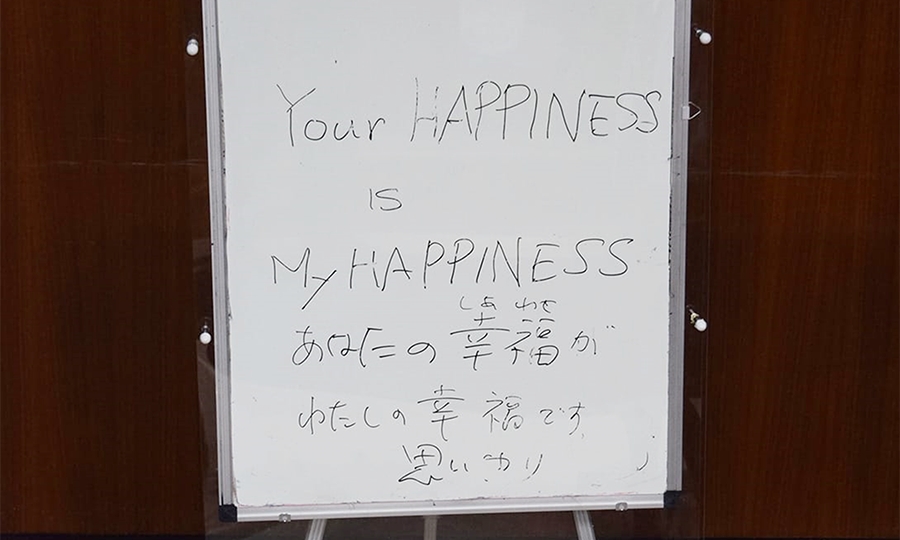 Your HAPPINESS
is
My HAPPINESS
しあわせ
あなたの幸福が
わたしの幸福です
思いやり